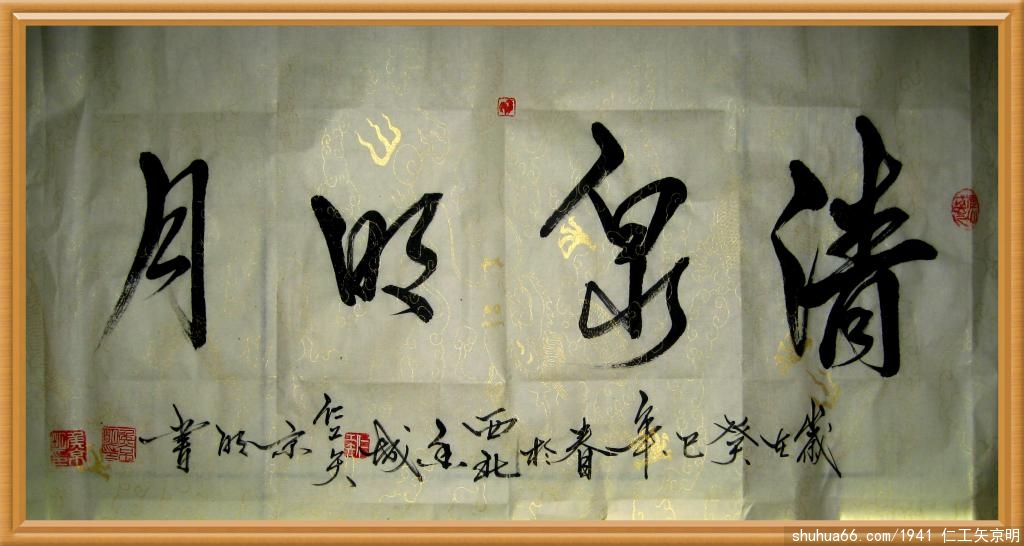 清泉明月
歲在癸巳年春於西北香城仁工矢京明書
shuhua66.com/1941 仁工矢京明